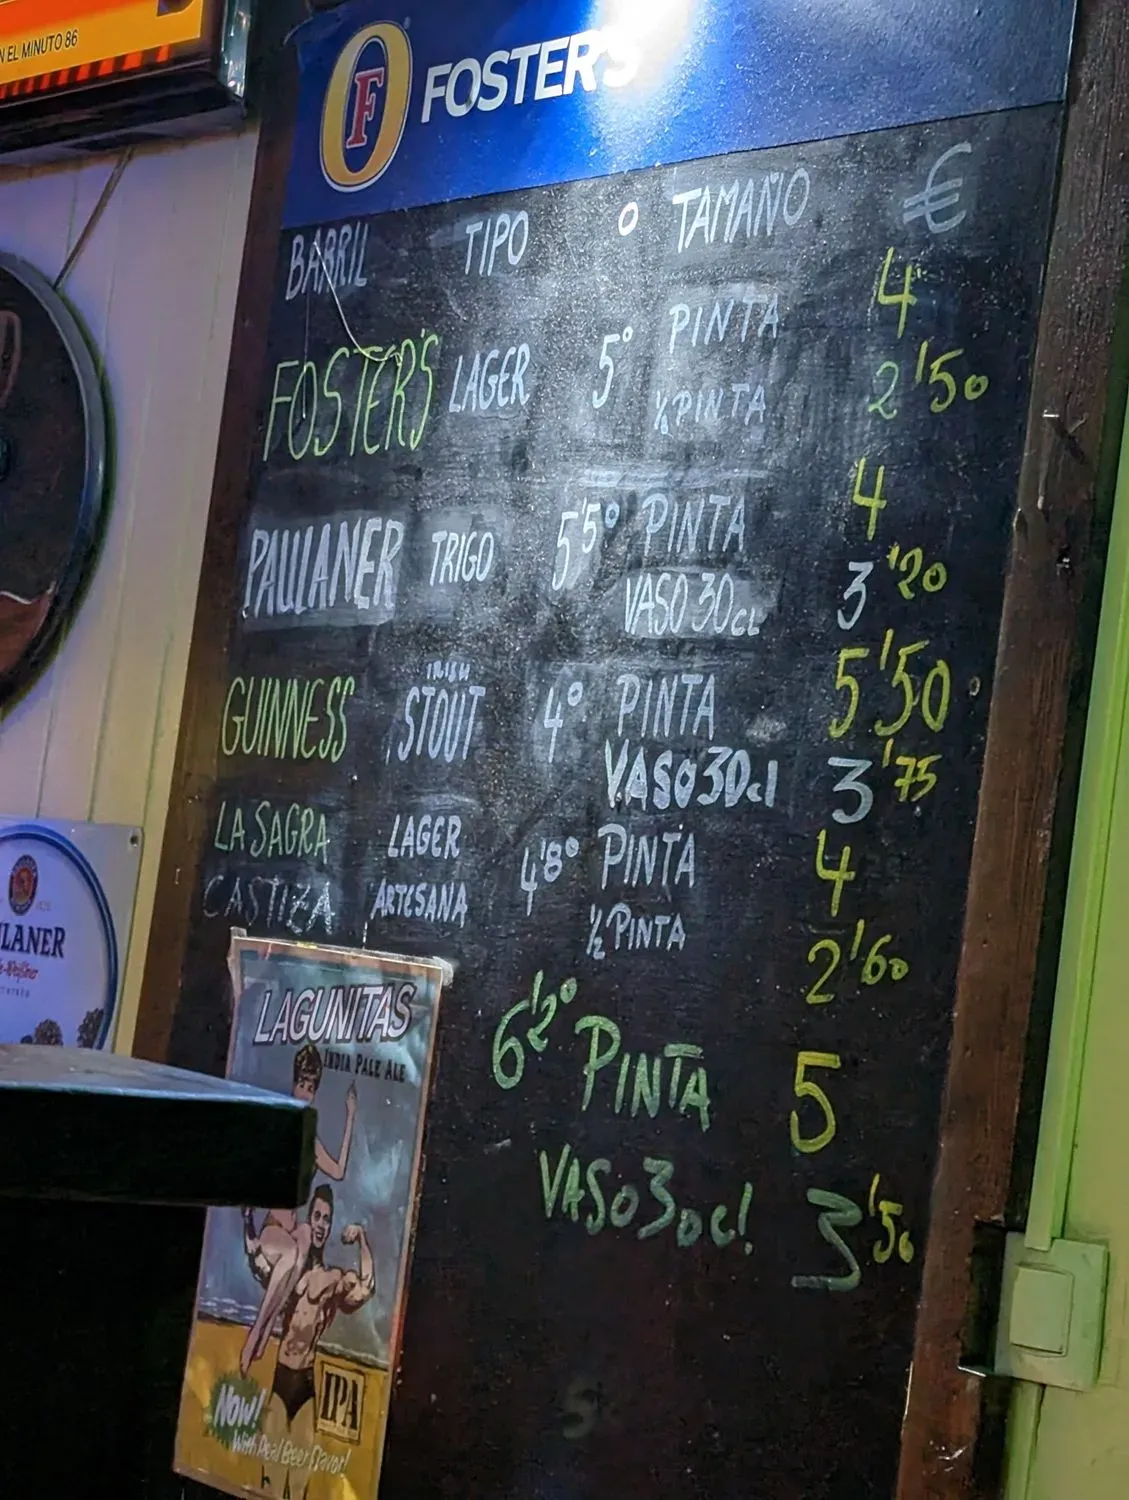 N EL MINUTO 86
F FOSTER'S
BARRIL TIPO º TAMAÑO €
FOSTER'S LAGER 5º PINTA 4
½ PINTA 2'50
PAULANER TRIGO 5'5º PINTA 4
VASO 30CL 3'20
GUINNESS IRISH STOUT 4º PINTA 5'50
VASO 30cl 3'75
LA SAGRA LAGER 4'8º PINTA 4
CASTIZA ARTESANA ½ PINTA 2'60
ULANER
LAGUNITAS
INDIA PALE ALE
6'2º PINTA 5
VASO 30cl 3'50
IPA
NOW!
With Real Beer Flavor!